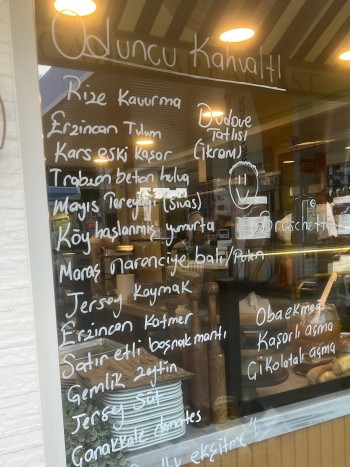 Oduncu Kahvaltı
Rize Kavurma
Erzincan Tulum
Kars eski kaşar
Trabzon beton helva
Mayıs Tereyağı (Sivas)
Köy haşlanmış yumurta
Maraş narenciye balı/Petek
Jersey Kaymak
Erzincan Katmer
Satır etli boşnak mantı
Gemlik zeytin
Jersey Süt
Çanakkale domates
ekşitme
Dudove
Tatlısı
(ikram)
Bruschetta
Obaekmeği
Kaşarlı açma
Çikolatalı açma